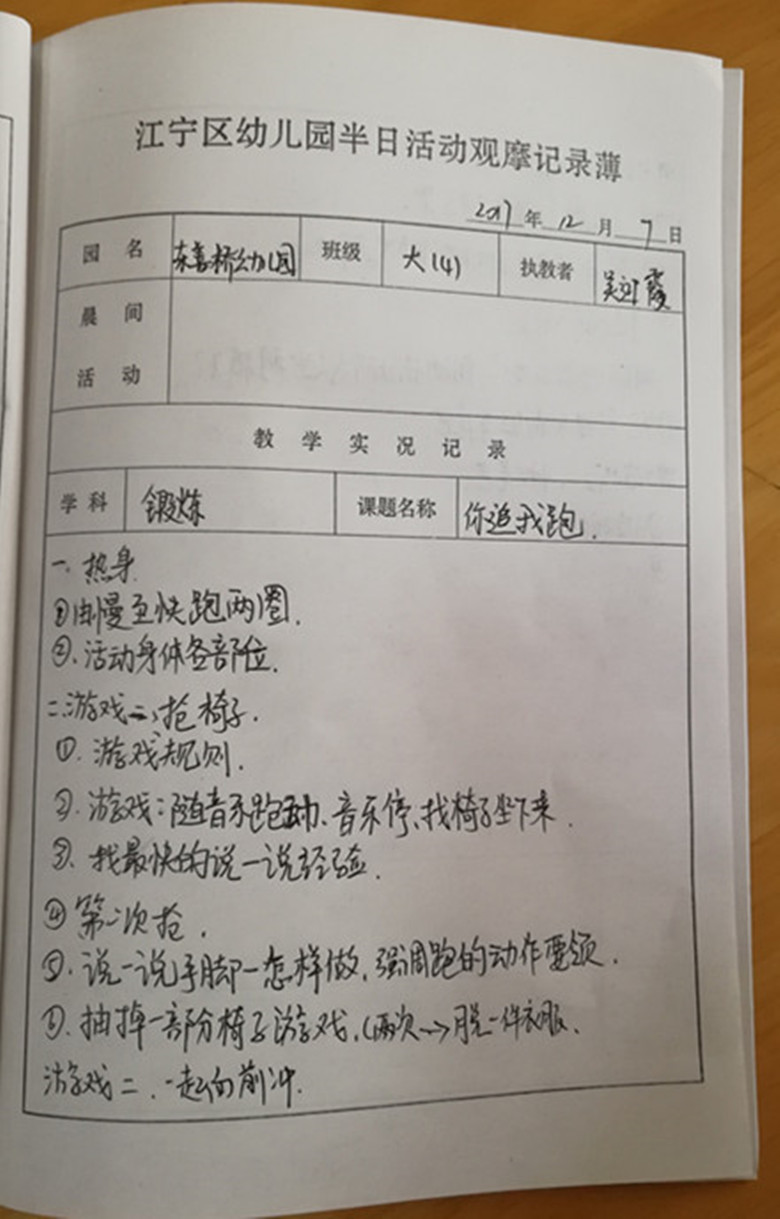 江宁区幼儿园半日活动观摩记录薄
2017年12月7日
园名 东善桥幼儿园 班级 大(4) 执教者 吴 霞
晨间
活动
教学实况记录
学科 锻炼 课题名称 你追我跑.
一.热身
①由慢至快跑两圈.
②.活动身体各部位.
二.游戏一、抢椅子.
①.游戏规则.
②.游戏:随音乐跑动、音乐停、找椅子坐下来.
③.找最快的说一说经验.
④第二次抢.
⑤.说一说手脚一怎样做,强调跑的动作要领.
⑥.抽掉一部分椅子游戏.(两次→)脱一件衣服.
游戏二.一起向前冲.